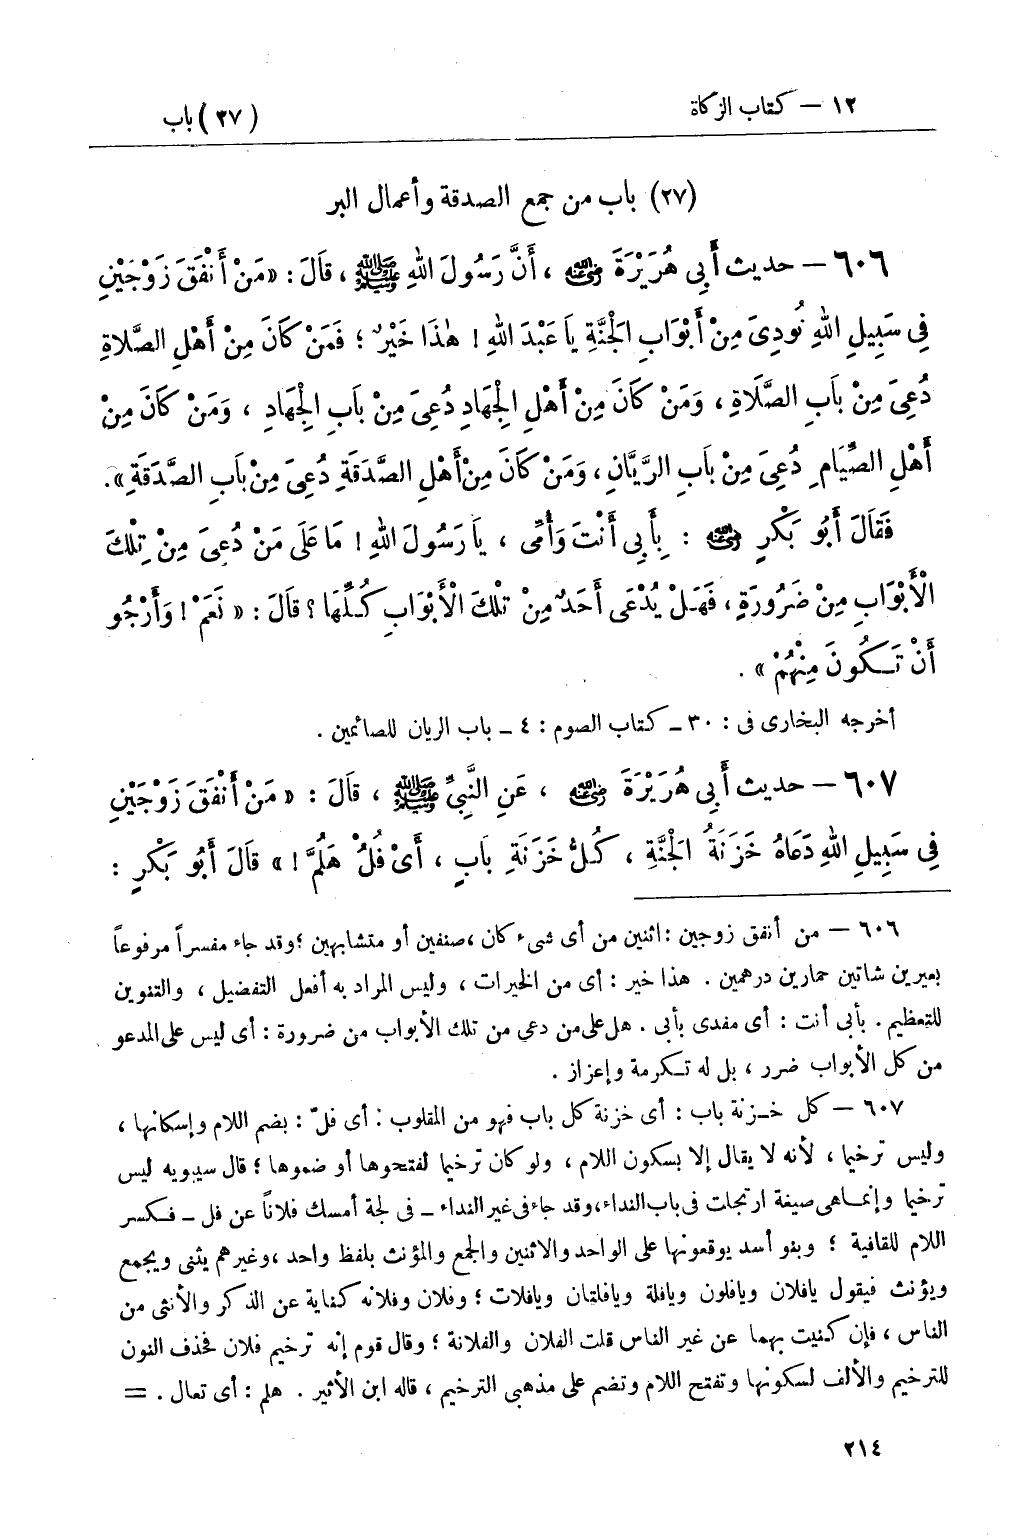 ١٢ — كتاب الزكاة
(٢٧) باب
(٢٧) باب من جمع الصدقة وأعمال البر
٦٠٦ — حديث أَبِي هُرَيْرَةَ رضي الله عنه ، أَنَّ رَسُولَ اللهِ ﷺ ، قَالَ : «مَنْ أَنْفَقَ زَوْجَيْنِ
فِي سَبِيلِ اللهِ نُودِىَ مِنْ أَبْوَابِ الْجَنَّةِ يَا عَبْدَ اللهِ ! هٰذَا خَيْرٌ ؛ فَمَنْ كَانَ مِنْ أَهْلِ الصَّلاةِ
دُعِىَ مِنْ بَابِ الصَّلَاةِ ، وَمَنْ كَانَ مِنْ أَهْلِ الْجِهَادِ دُعِىَ مِنْ بَابِ الْجِهَادِ ، وَمَنْ كَانَ مِنْ
أَهْلِ الصِّيَامِ دُعِىَ مِنْ بَابِ الرَّيَّانِ ، وَمَنْ كَانَ مِنْ أَهْلِ الصَّدَقَةِ دُعِىَ مِنْ بَابِ الصَّدَقَةِ» .
فَقَالَ أَبُو بَكْرٍ رضي الله عنه : بِأَبِي أَنْتَ وَأُمِّى ، يَا رَسُولَ اللهِ ! مَا عَلَى مَنْ دُعِىَ مِنْ تِلْكَ
الْأَبْوَابِ مِنْ ضَرُورَةٍ ، فَهَلْ يُدْعَى أَحَدٌ مِنْ تِلْكَ الْأَبْوَابِ كُلِّهَا ؟ قَالَ : « نَعَمْ ! وَأَرْجُو
أَنْ تَكُونَ مِنْهُمْ » .
أخرجه البخارى فى : ٣٠ — كتاب الصوم : ٤ — باب الريان للصائمين .
٦٠٧ — حديث أَبِي هُرَيْرَةَ رضي الله عنه ، عَنِ النَّبِيِّ ﷺ ، قَالَ : « مَنْ أَنْفَقَ زَوْجَيْنِ
فِى سَبِيلِ اللهِ دَعَاهُ خَزَنَةُ الْجَنَّةِ ، كُلُّ خَزَنَةِ بَابٍ ، أَىْ فُلُ هَلُمَّ ! » قَالَ أَبُو بَكْرٍ :
٦٠٦ — من أنفق زوجين : اثنين من أى شىء كان ، صنفين أو متشابهين ؛ وقد جاء مفسراً مرفوعاً
بعيرين شاتين حمارين درهمين . هذا خير : أى من الخيرات ، وليس المراد به أفعل التفضيل ، والتنوين
للتعظيم . بأبى أنت : أى مفدى بأبى . هل على من دعي من تلك الأبواب من ضرورة : أى ليس على المدعو
من كل الأبواب ضرر ، بل له تكرمة وإعزاز .
٦٠٧ — كل خزنة باب : أى خزنة كل باب فهو من المقلوب : أى فلّ : بضم اللام وإسكانها ،
وليس ترخيما ، لأنه لا يقال إلا بسكون اللام ، ولو كان ترخيما لفتحوها أو ضموها ؛ قال سيبويه ليس
ترخيما وإنما هى صيغة ارتجلت فى باب النداء ، وقد جاء فى غير النداء — فى لجة أمسك فلاناً عن فل — فكسر
اللام للقافية ؛ وبنو أسد يوقعونها على الواحد والاثنين والجمع والمؤنث بلفظ واحد ، وغيرهم يثنى ويجمع
ويؤنث فيقول يافلان ويافلون ويافلة ويافلتان ويافلات ؛ وفلان وفلانه كناية عن الذكر والأنثى من
الناس ، فإن كنيت بهما عن غير الناس قلت الفلان والفلانة ؛ وقال قوم إنه ترخيم فلان فحذف النون
للترخيم والألف لسكونها وتفتح اللام وتضم على مذهبى الترخيم ، قاله ابن الأثير . هلم : أى تعال . =
٢١٤